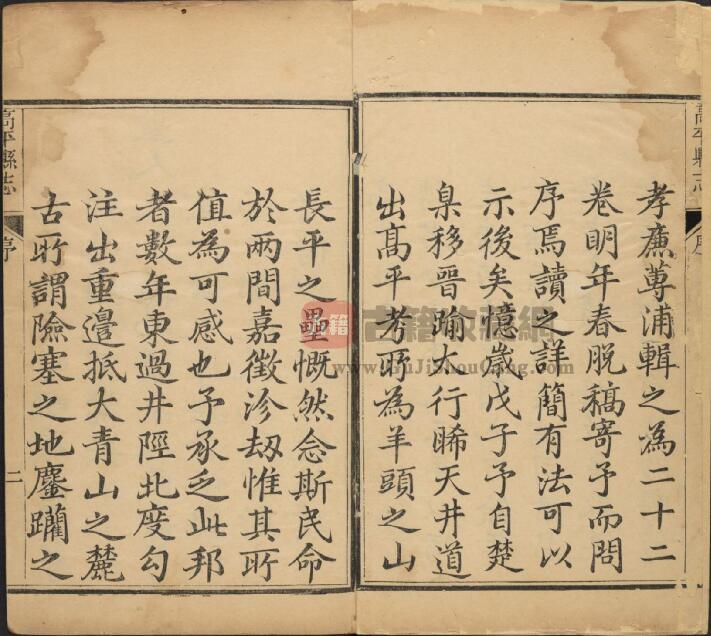 孝廉蓴浦輯之為二十二
卷明年春脫稿寄予而問
序焉讀之詳簡有法可以
示後矣憶歲戊子予自楚
臬移晉踰大行睎天井道
出高平考所為羊頭之山
長平之壘慨然念斯民命
於兩間嘉徵沴劫惟其所
值為可感也予承乏此邦
者數年東過井陘北度勾
注出重邉抵大青山之麓
古所謂險塞之地鏖躪之
高平縣志
序
二
高平縣志
古籍收藏網
www.GuJiShouCang.com